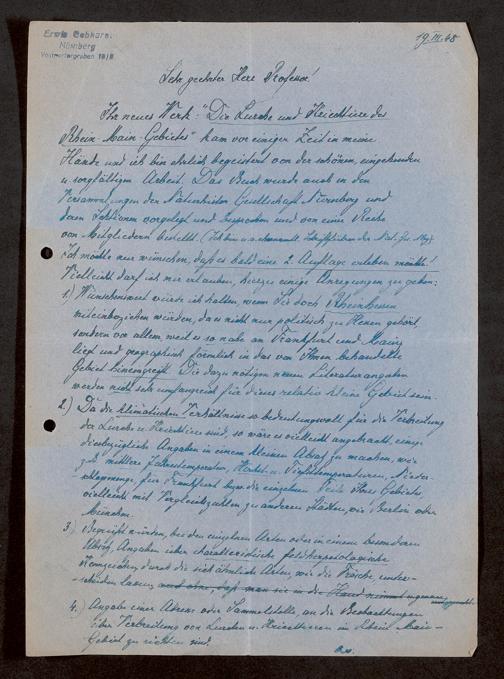 Erwin Gebhardt
Nürnberg
Vestnertorgraben
19. III. 48
Sehr geehrter Herr Professor!
Ihr neues Werk: "Die Lurche und Kriechtiere des
Rhein-Main-Gebietes" kam vor einiger Zeit in meine
Hände und ich bin ehrlich begeistert von der schönen, eingehenden
u. sorgfältigen Arbeit. Das Buch wurde auch in den
Versammlungen der Naturhistor. Gesellschaft Nürnberg und
deren Sektionen vorgelegt und besprochen und von einer Reihe
von Mitgliedern bestellt. (Ich bin u. a. Schriftführer der Nat. Ges. Nbg.)
Ich möchte nur wünschen, daß es bald eine 2. Auflage erleben möchte!
Vielleicht darf ich mir erlauben, hierzu einige Anregungen zu geben:
1.) Wünschenswert würde ich halten, wenn Sie doch Rheinhessen
miteinbeziehen würden, da es nicht nur politisch zu Hessen gehört,
sondern vor allem, weil es so nahe an Frankfurt und Mainz
liegt und geographisch förmlich in das von Ihnen behandelte
Gebiet hineingreift. Die dazu nötigen neuen Literaturangaben
werden nicht sehr umfangreich für dieses relativ kleine Gebiet sein.
2.) Da die klimatischen Verhältnisse so bedeutungsvoll für die Verbreitung
der Lurche u. Kriechtiere sind, so wäre es vielleicht angebracht, einige
diesbezügliche Angaben in einem kleinen Absatz zu machen, wie
z. B. mittlere Jahrestemperaturen, Höchst- u. Tiefsttemperaturen, Nieder-
schlagsmenge, für Frankfurt bzw. die einzelnen Teile Ihres Gebietes,
vielleicht mit Vergleichszahlen zu anderen Städten, wie Berlin oder
München.
3.) Begrüßt würden, bei den einzelnen Arten oder in einem besonderen
Absatz, Angaben über charakteristische feldherpetologische
Kennzeichen, durch die sich ähnliche Arten, wie die Frösche, unter-
scheiden lassen, auch ohne, daß man sie in die Hand nimmt
4.) Angabe einer Adresse oder Sammelstelle, an die Beobachtungen
über Verbreitung von Lurchen u. Kriechtieren im Rhein-Main-
Gebiet zu richten sind.